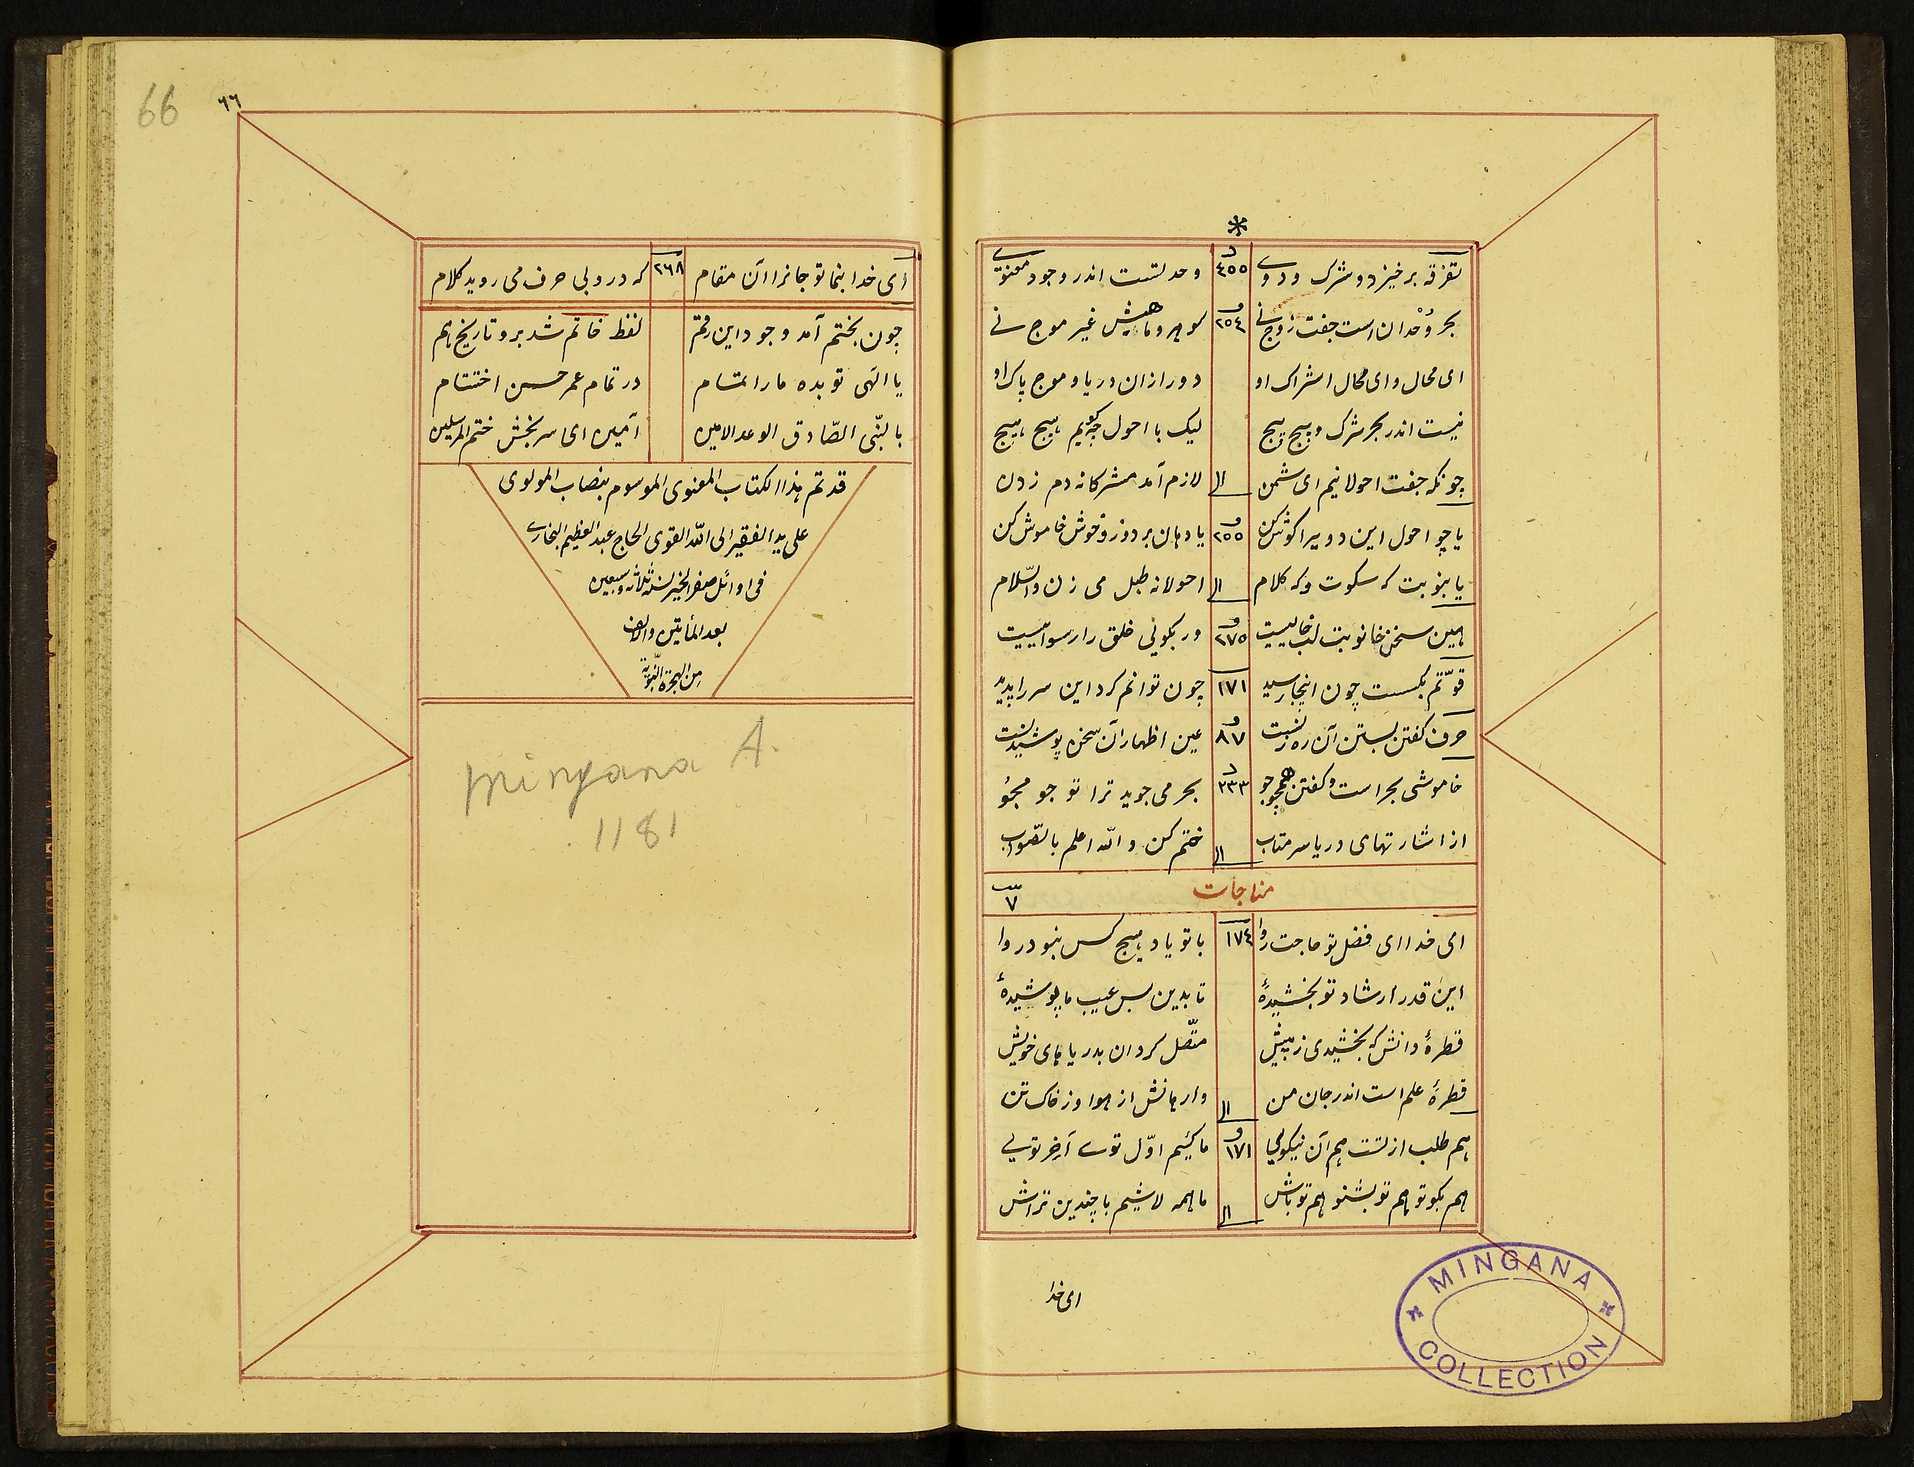 *
تفرقه برخیزد و شرک و دوی ٤٥٥ وحدتست اندر وجود معنوی
بحر وُحْدان است جفت و زوج نی ٢٥٤ گوهر و ماهیش غیر موج نی
ای محال و ای محال اشراک او دور ازان دریا و موج پاک او
نیست اندر بحر شرک و پیچ پیچ لیک با احول چه کویم هیچ هیچ
چونکه جفت احولانیم ای شمن لازم آمد مشرکانه دم زدن
یا چو احول این دویی را کوش کن ٢٥٥ یا دهان بردوز و خوش خاموش کن
یا بنوبت که سکوت و که کلام احولانه طبل می زن والسّلام
هین سخن خا نوبت لب خاییست ٢٧٥ ور بکوئی خلق را رسواییست
قوّتم بکسست چون اینجا رسید ١٧١ چون توانم کرد این سر را پدید
حرف کفتن بستن آن روزنست ٨٧ عین اظهار آن سخن پوشیدنست
خاموشی بحر است و کفتن همچو جو ٣٣٣ بحر می جوید ترا تو جو مجو
از اشارتهای دریا سر متاب ختم کن و الله اعلم بالصّواب
مناجات ٧
ای خدا ای فضل تو حاجت روا ١٧٤ با تو یاد هیچ کس نبود روا
این قدر ارشاد تو بخشیدهٔ تا بدین بس عیب ما پوشیدهٔ
قطرهٔ دانش که بخشیدی ز پیش متّصل کردان بدریاهای خویش
قطرهٔ علم است اندر جان من وارهانش از هوا وز خاک تن
هم طلب از تست هم آن نیکویی ١٧١ ما کئیم اوّل توی آخر تویی
هم بکو تو هم تو بشنو هم تو باش ما همه لاشیم با چندین تراش
ای خدا
MINGANA COLLECTION
66 ٦٦
ای خدا بنما تو جانرا آن مقام ٢٦٨ که درو بی حرف می روید کلام
چون بختم آمد وجود این رقم لفظ خاتم شد برو تاریخ هم
یا الهی تو بده ما را بتمام در تمام عمر حسن اختتام
بالنبّی الصّادق الوعد الامین آمین ای سربخش ختم المرسلین
قد تم هذا الکتاب المعنوی الموسوم بنصاب المولوی
علی ید الفقیر الی الله القوی الحاج عبد العظیم البخاری
فی اوائل صفر الخیر لسنة ثلاثة و سبعین
بعد المأیتین والالف
من الهجرة النّبویّة
Mingana A.
1181